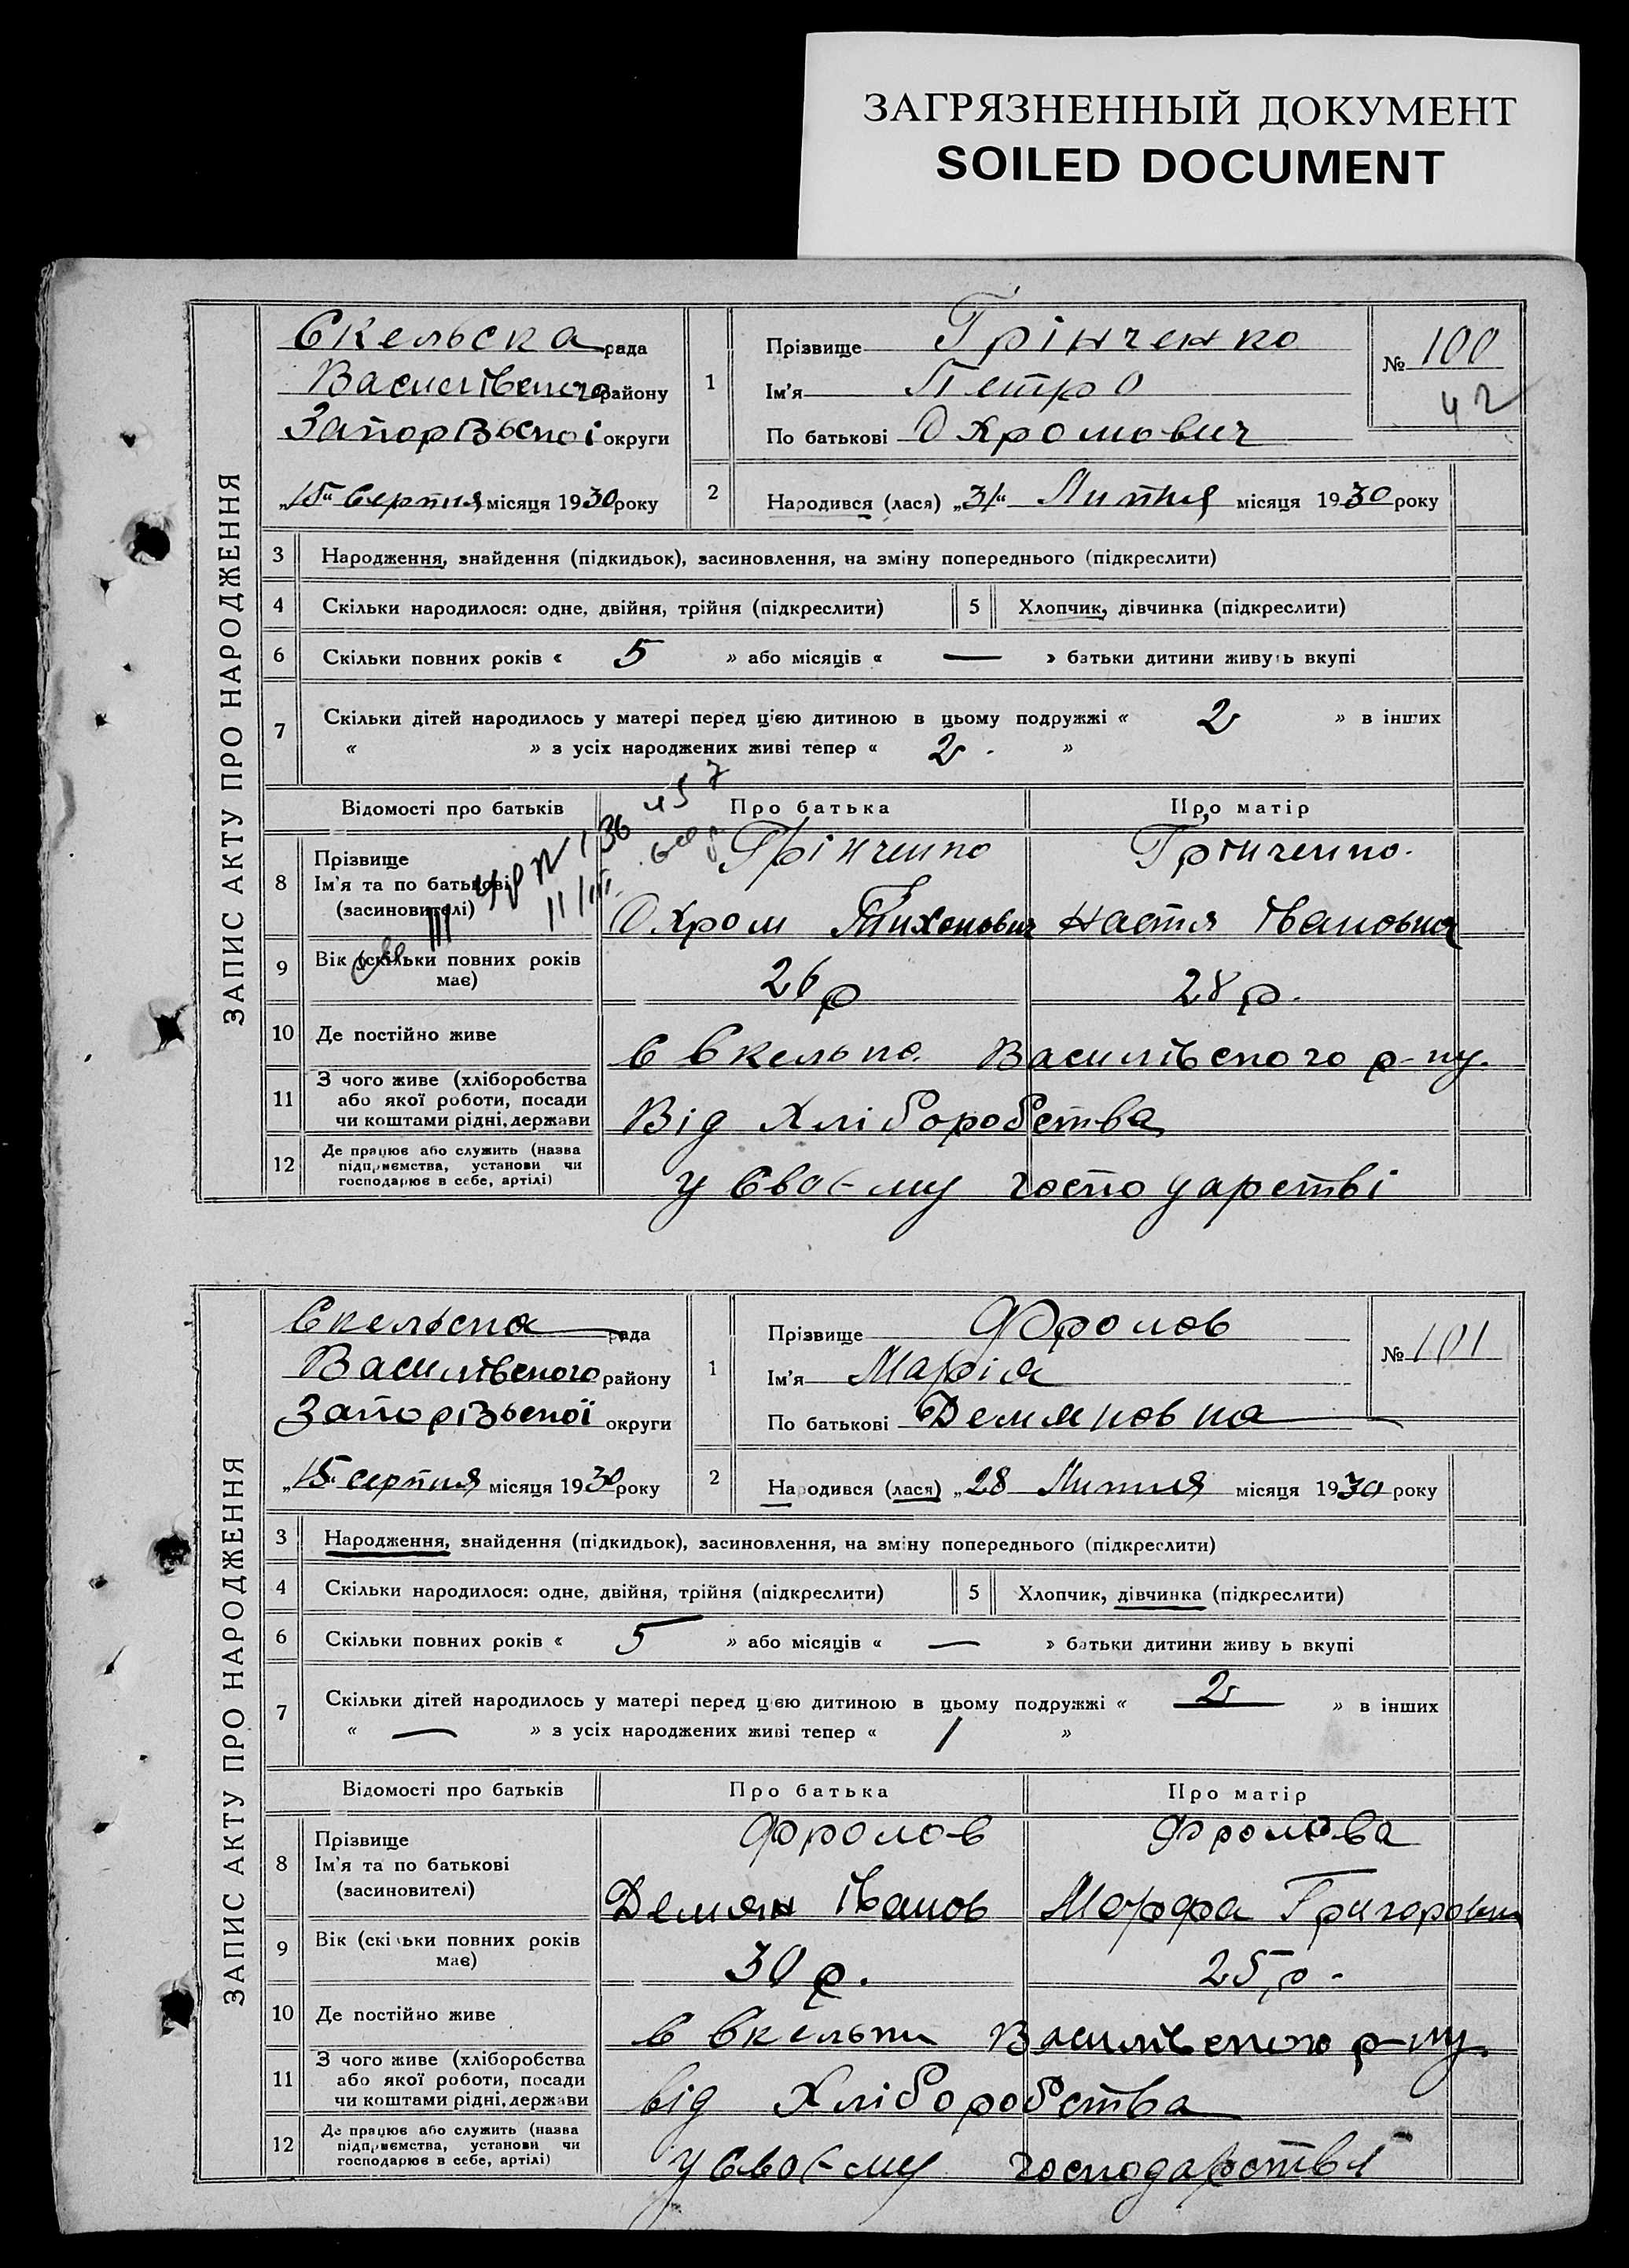 ЗАГРЯЗНЕННЫЙ ДОКУМЕНТ
SOILED DOCUMENT
ЗАПИС АКТУ ПРО НАРОДЖЕННЯ
Скельска рада
Василівського району
Запорізської округи
„15“ Серпня місяця 1930 року
1
Прізвище Грінченко
Ім'я Петро
По батькові Охромович
№ 100
42
2 Народився (лася) „31“ Липня місяця 1930 року
3 Народження, знайдення (підкидьок), засиновлення, на зміну попереднього (підкреслити)
4 Скільки народилося: одне, двійня, трійня (підкреслити) 5 Хлопчик, дівчинка (підкреслити)
6 Скільки повних років « 5 » або місяців « — » батьки дитини живуть вкупі
7 Скільки дітей народилось у матері перед цією дитиною в цьому подружжі « 2 » в інших
« » з усіх народжених живі тепер « 2 . »
Відомості про батьків Про батька Про матір
8 Прізвище
Ім'я та по батькові
(засиновителі)
Грінченко Грінченко.
Охром Тихонович Настя Івановна
9 Вік (скільки повних років має) 26 р 28 р.
10 Де постійно живе
С Скелька Василівського р-ну.
11 З чого живе (хліборобства
або якої роботи, посади
чи коштами рідні, держави
Від Хліборобства
12 Де працює або служить (назва
підприємства, установи чи
господарює в себе, артілі)
у Своєму господарстві
ЗАПИС АКТУ ПРО НАРОДЖЕННЯ
Скельска рада
Василівського району
Запорізської округи
„15“ серпня місяця 1930 року
1
Прізвище Фролов
Ім'я Марія
По батькові Демяновна
№ 101
2 Народився (лася) „28 Липня місяця 1930 року
3 Народження, знайдення (підкидьок), засиновлення, на зміну попереднього (підкреслити)
4 Скільки народилося: одне, двійня, трійня (підкреслити) 5 Хлопчик, дівчинка (підкреслити)
6 Скільки повних років « 5 » або місяців « — » батьки дитини живу ь вкупі
7 Скільки дітей народилось у матері перед цією дитиною в цьому подружжі « 2 » в інших
« — » з усіх народжених живі тепер « 1 »
Відомості про батьків Про батька Про матір
8 Прізвище
Ім'я та по батькові
(засиновителі)
Фролов Фролова
Демян Іванов Марфа Григоровн
9 Вік (скільки повних років має) 30 р. 25 р.
10 Де постійно живе
С Скельки Василівського р-ну.
11 З чого живе (хліборобства
або якої роботи, посади
чи коштами рідні, держави
від Хліборобства
12 Де працює або служить (назва
підприємства, установи чи
господарює в себе, артілі)
у Своєму господарстві